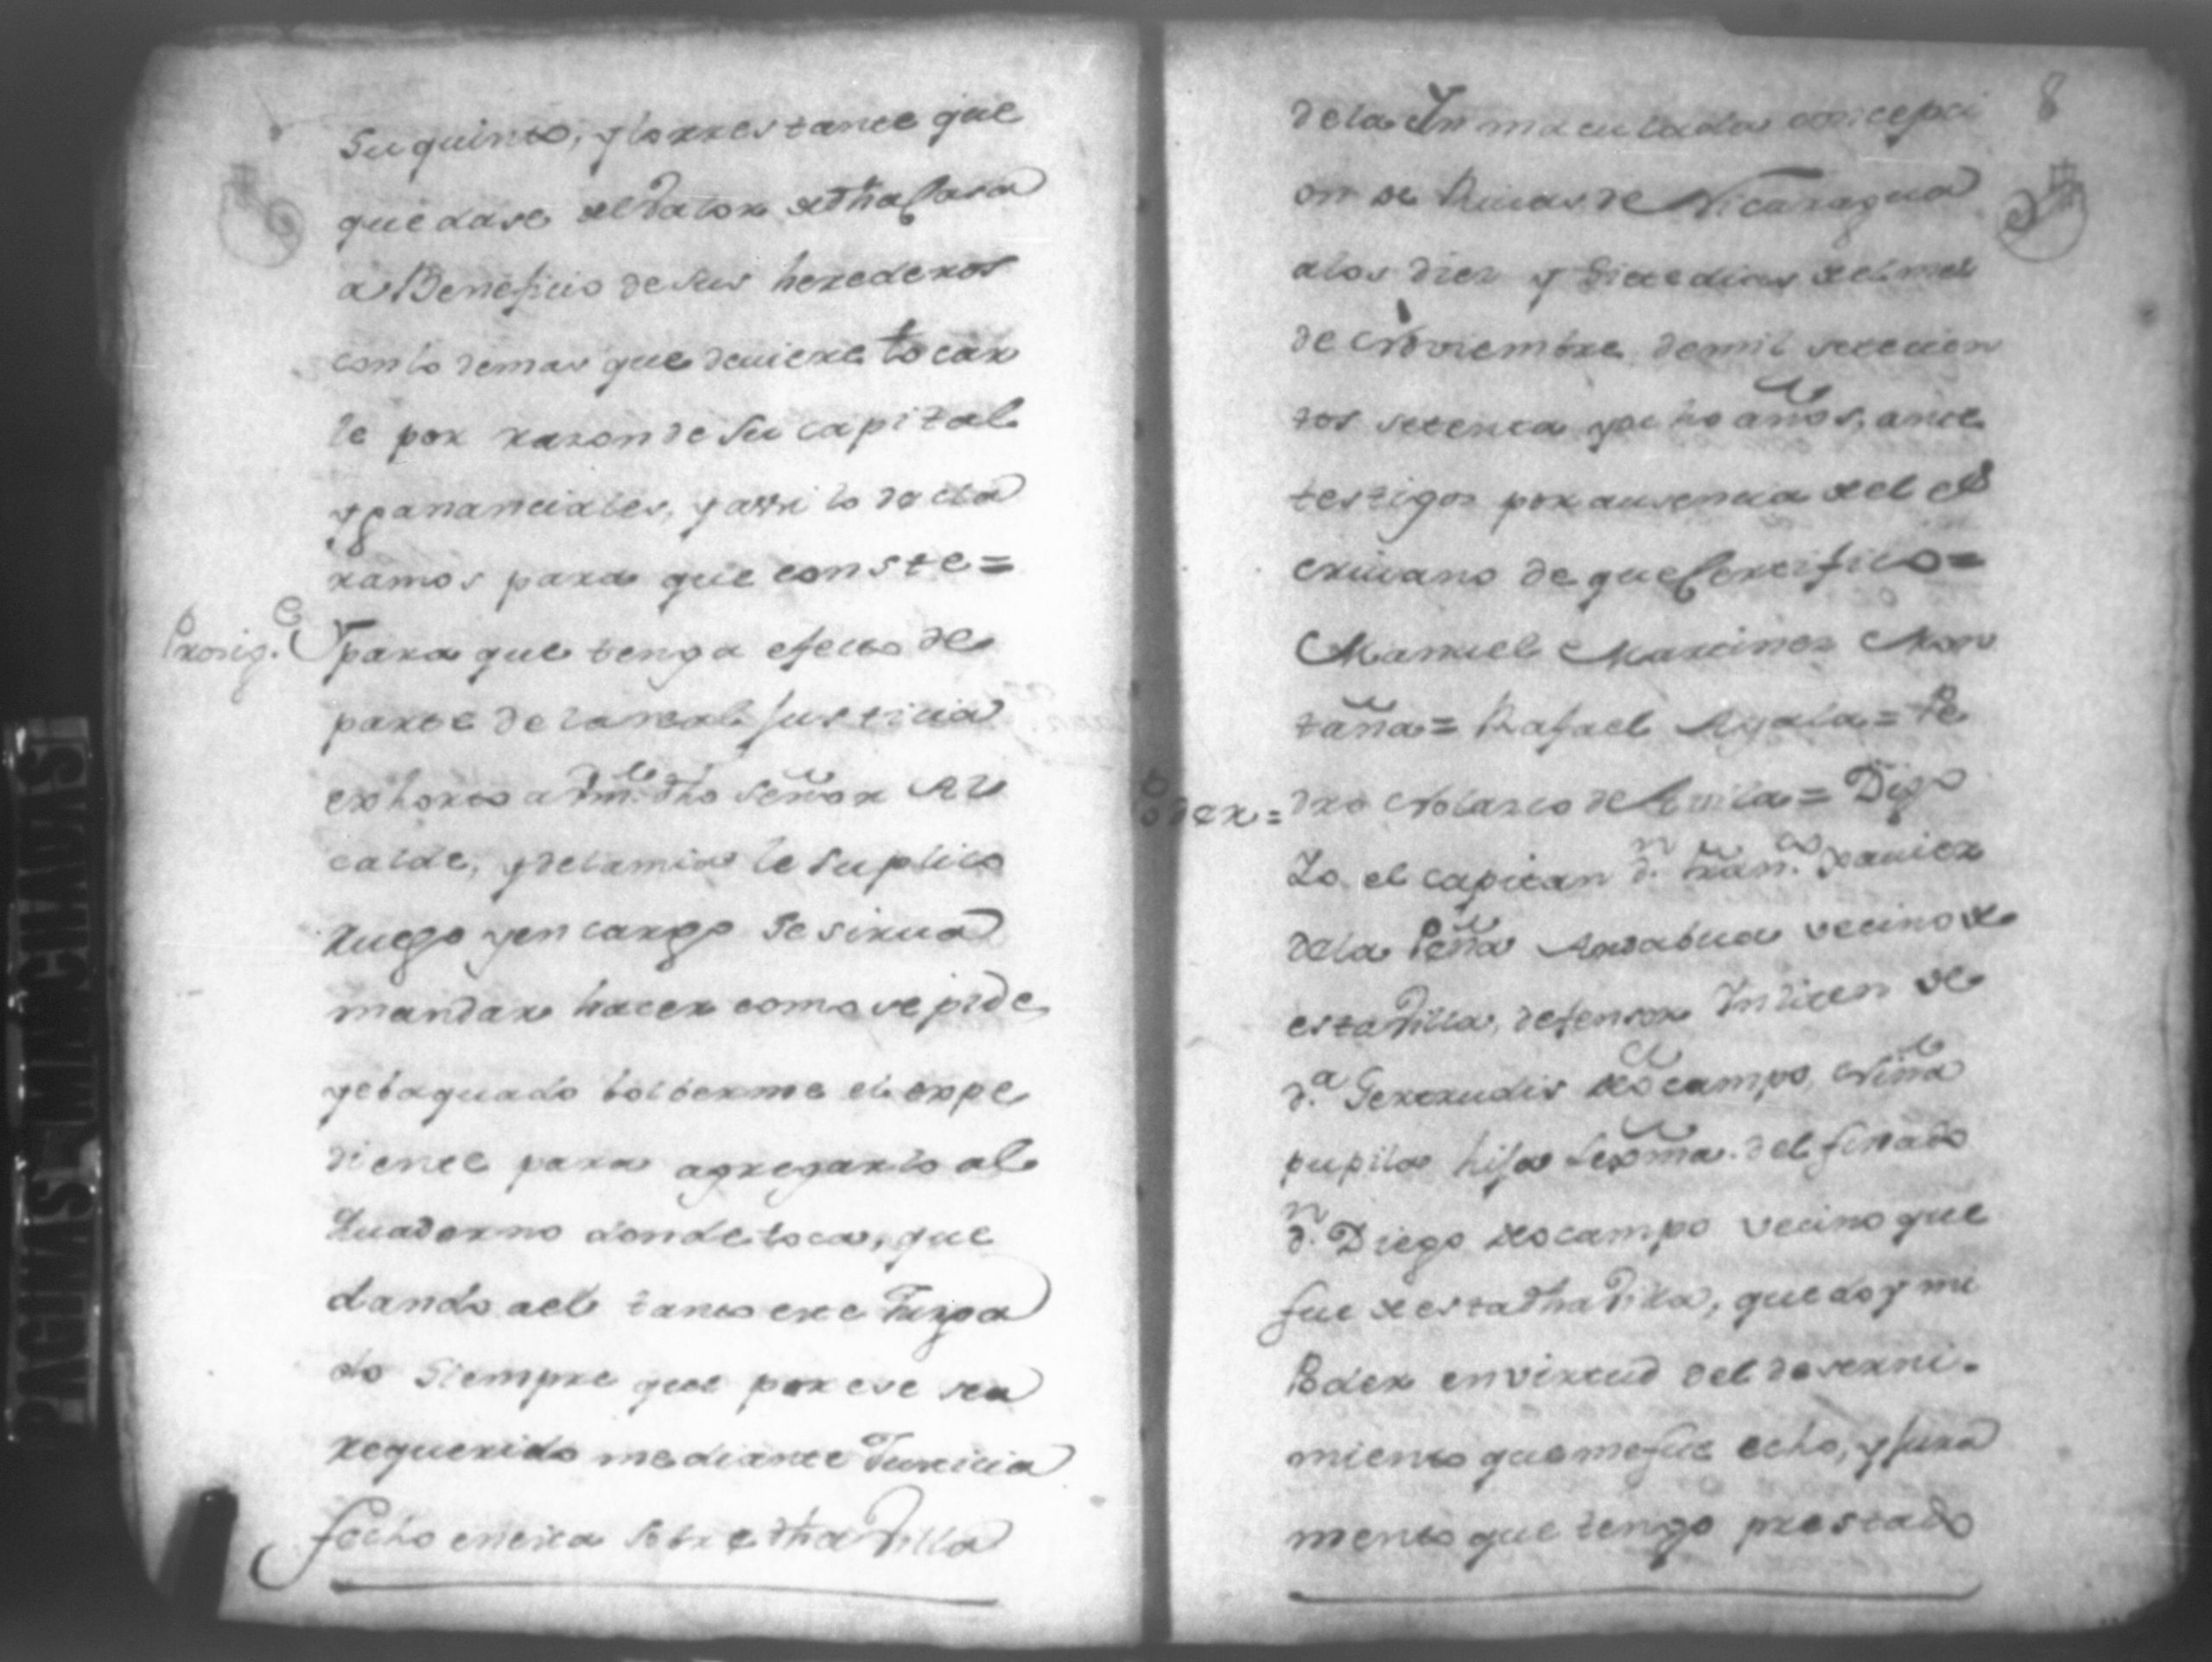 Su quinto, y lo rrestante que
quedase del Valor de dha Casa
a Beneficio de sus herederos
con lo demas que deviere tocar
le por razon de su capital
y gananciales, y assi lo decla
ramos para que conste =
Prosig.e Y para que tenga efecto de
parte de la real Justicia
exhorto a dho Señor Al
calde, y de la mia le suplico
ruego y encargo se sirva
mandar hacer como se pide
y ebaquado bolberme el expe
diente para agregarlo al
Quaderno donde toca, que
dando a el tanto ese Juzga
do siempre que por ese sea
requerido mediante Justicia
fecho en esta sobre dha Villa
8
de la Inmaculada concepci
on de Rivas de Nicaragua
a los diez y siete dias del mes
de Noviembre de mil setecien
tos setenta y ocho años, ante
testigos por ausencia del es
crivano de que Certifico =
Manuel Martinez Mon
taña = Rafael Ayala = Pe
dro Nolasco de Avila = Digo
Poder =
Yo el capitan d.n Fran.co Xavier
de la Peña Andabua vecino de
esta Villa, defensor In liten de
d.a Gertrudis de Ocampo, Niña
pupila hija lexma. del finado
d.n Diego de Ocampo vecino que
fue de esta dha Villa, que doy mi
Poder en virtud del deserni-
miento que me fue echo, y jura
mento que tengo prestado
PAGINAS MANCHADAS